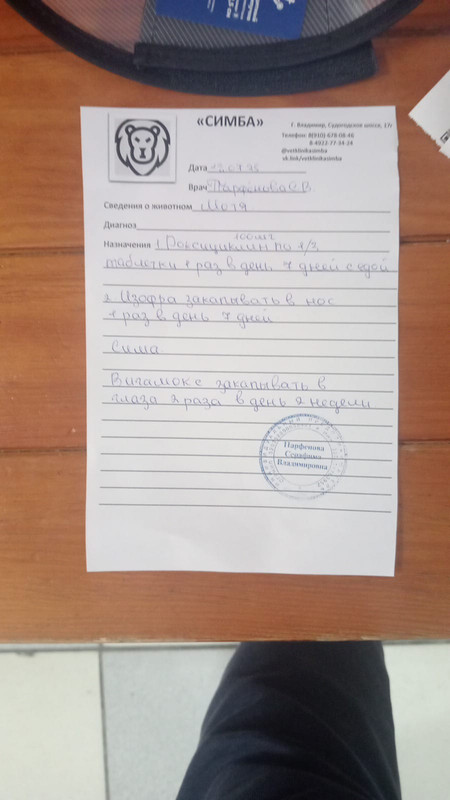 «СИМБА»
Г. Владимир, Судогодское шоссе, 17г
Телефон 8(910)-678-08-46
8-4922-77-34-24
@vetklinikasimba
vk.link/vetklinikasimba
Дата
Врач Парфенова С В
Сведения о животном Мотя
Диагноз
Назначения 1 Доксициклин 100мг по 1/2
таблетки 1 раз в день 7 дней с едой
2 Изофра закапывать в нос
1 раз в день 7 дней
Сима
Вигамокс закапывать в
глаза 2 раза в день 2 недели
Парфенова
Серафима
Владимировна